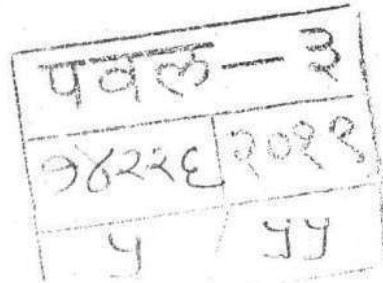 पवल — ३
१४२२६ २०१९
५ ५५